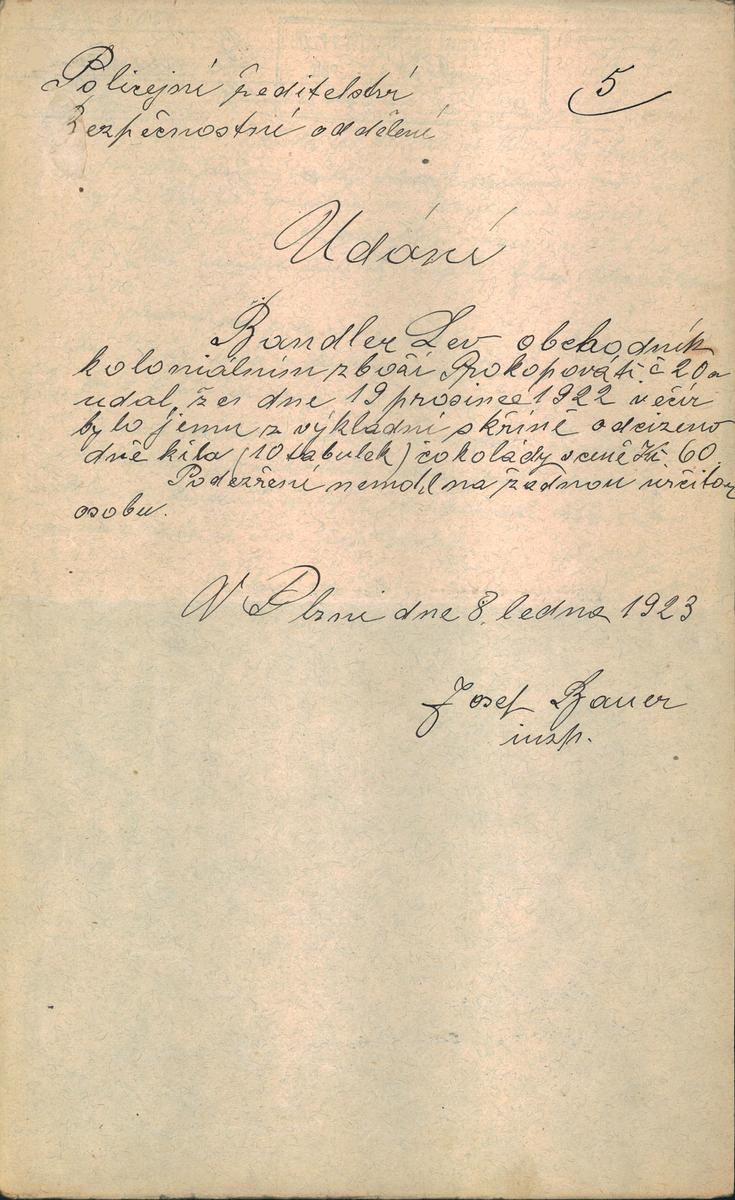 Policejní ředitelství
5
Bezpečnostní oddělení
Udání
Bandler Lev obchodník
koloniálním zbožím Prokopova tř. č 20
udal, že dne 19 prosince 1922 večír
bylo jemu z výkladní skříně odcizeno
dvě kila (10 tabulek) čokolády v ceně Kč. 60.
Podezření nemá na žádnou určitou
osobu.
V Plzni dne 8. ledna 1923
Josef Bauer
insp.